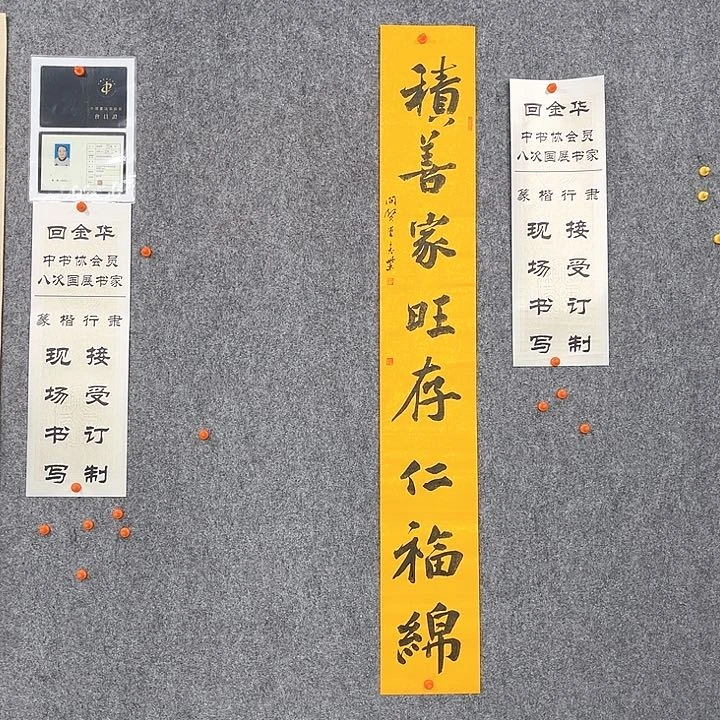 會員證
回金华
中书协会员
八次国展书家
篆楷行隶
现场书写
接受订制
積善家旺存仁福綿
回金华
中书协会员
八次国展书家
篆楷行隶
现场书写
接受订制